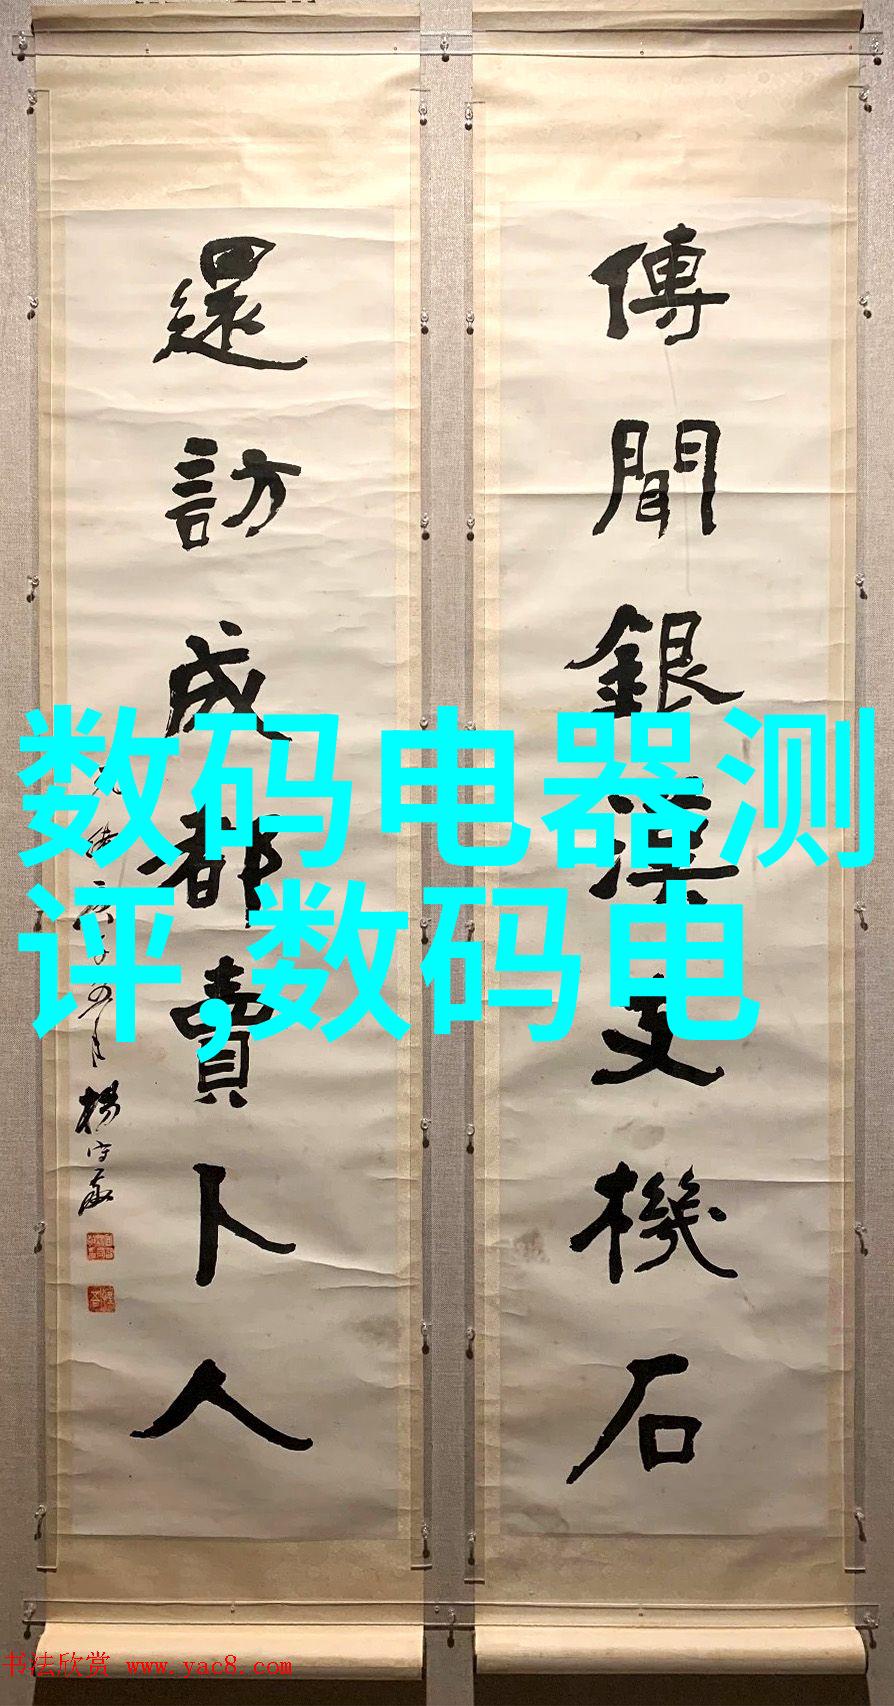 傳聞銀漢支機石
還訪成都賣卜人
楊守敬
数码电器测
评,数码电
书法欣赏 www.yac8.com